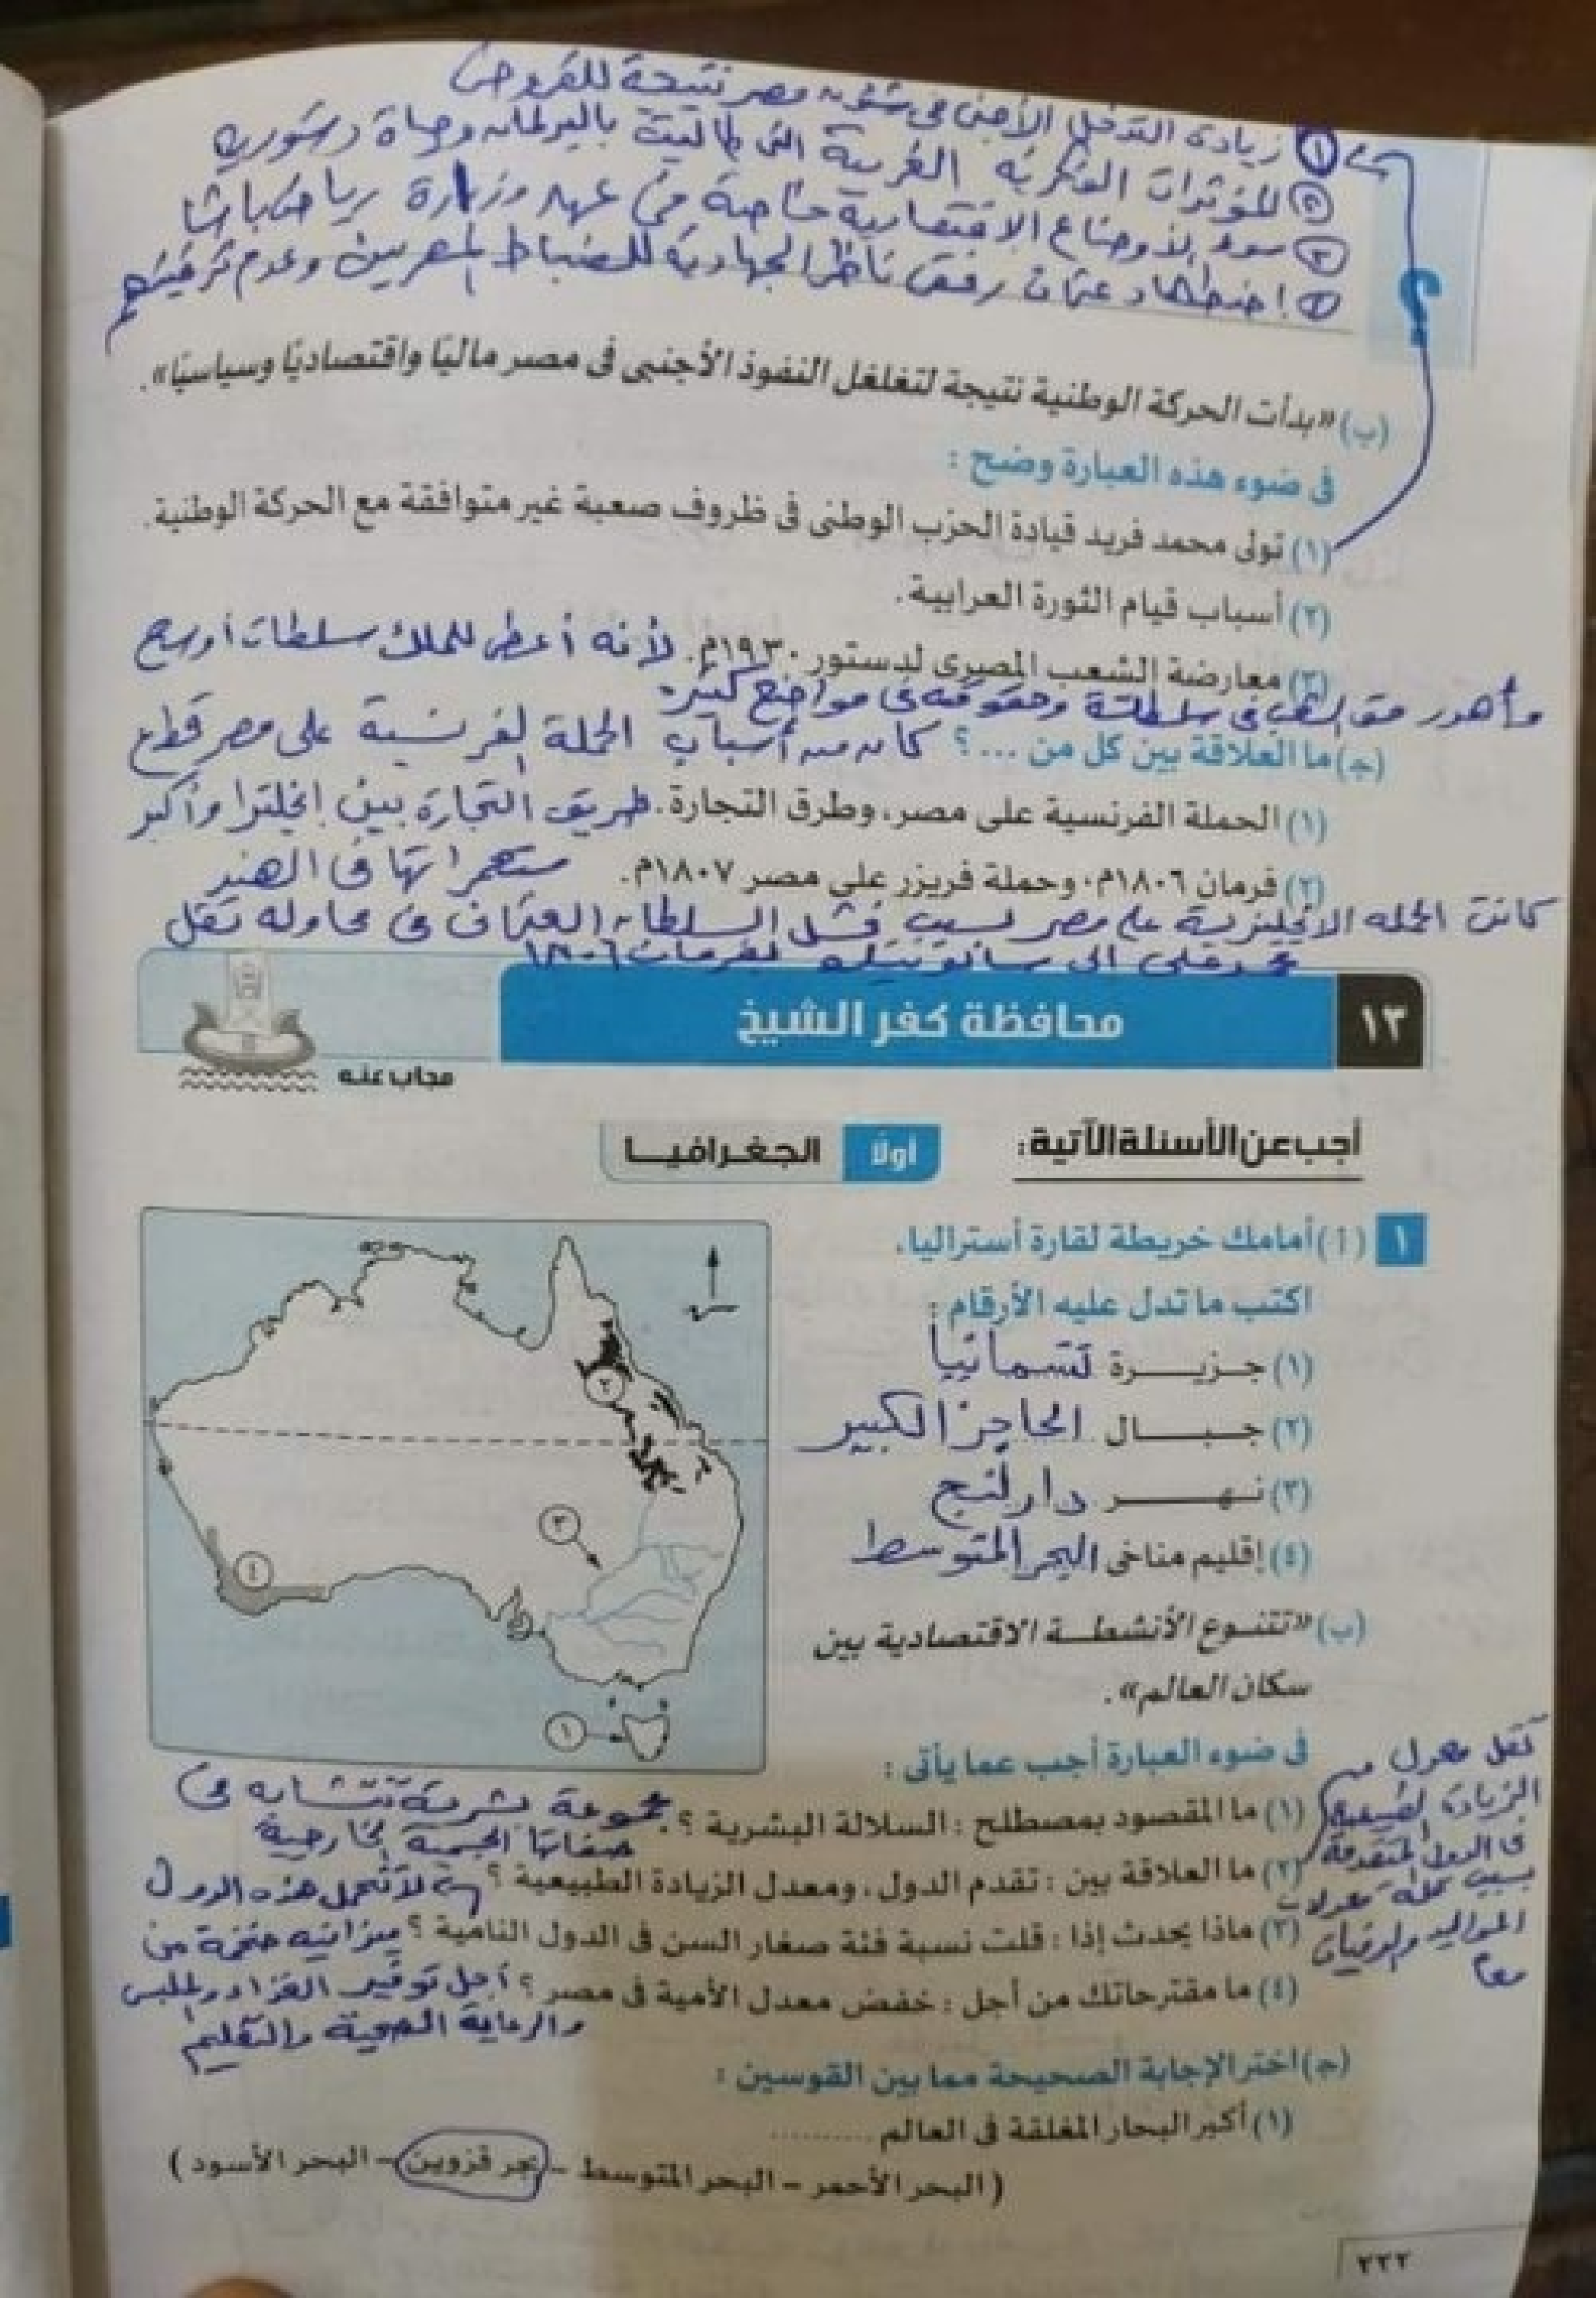 ① زيادة التدخل الأجنبى فى شئون مصر نتيجة للقروض
② المؤثرات الفكرية الغربية التى طالبت بالبرلمان وحياة دستورية
③ سوء الأوضاع الاقتصادية خاصة فى عهد وزارة رياض باشا
④ اضطهاد عثمان رفقى ناظر الجهادية للضباط المصريين وعدم ترقيتهم
(ب) «بدأت الحركة الوطنية نتيجة لتغلغل النفوذ الأجنبى فى مصر ماليًا واقتصاديًا وسياسيًا».
فى ضوء هذه العبارة وضح :
(١) تولى محمد فريد قيادة الحزب الوطنى فى ظروف صعبة غير متوافقة مع الحركة الوطنية.
(٢) أسباب قيام الثورة العرابية.
(٣) معارضة الشعب المصرى لدستور ١٩٣٠م. لأنه أعطى للملك سلطات أوسع
وأهدر حق الشعب فى سلطاته وحقوقه فى مواضع كثيرة
(ج) ما العلاقة بين كل من ...؟ كان من أسباب الحملة الفرنسية على مصر قطع
(١) الحملة الفرنسية على مصر، وطرق التجارة. طريق التجارة بين إنجلترا وأكبر
مستعمراتها فى الهند
(٢) فرمان ١٨٠٦م، وحملة فريزر على مصر ١٨٠٧م.
كانت الحملة الإنجليزية على مصر بسبب فشل السلطان العثمانى فى محاولة نقل
محمد على إلى سالونيك لفرمان ١٨٠٦
١٣ محافظة كفر الشيخ
مجاب عنه
أجب عن الأسئلة الآتية :
أولًا الجغرافيا
١ (أ) أمامك خريطة لقارة أستراليا،
اكتب ما تدل عليه الأرقام :
(١) جزيرة تسمانيا
(٢) جبال الحاجز الكبير
(٣) نهر دارلنج
(٤) إقليم مناخى البحر المتوسط
٢
٣
٤
١
(ب) «تتنوع الأنشطة الاقتصادية بين
سكان العالم».
فى ضوء العبارة أجب عما يأتى :
(١) ما المقصود بمصطلح : السلالة البشرية ؟ مجموعة بشرية تتشابه فى
صفاتها الجسمية الخارجية
(٢) ما العلاقة بين : تقدم الدول، ومعدل الزيادة الطبيعية ؟
تقل معدل
الزيادة الطبيعية
فى الدول المتقدمة
بسبب قلة معدلات
المواليد والوفيات
معا
(٣) ماذا يحدث إذا : قلت نسبة فئة صغار السن فى الدول النامية ؟ لا تتحمل هذه الدول
ميزانية ضخمة من
أجل توفير الغذاء والملبس
والرعاية الصحية والتعليم
(٤) ما مقترحاتك من أجل : خفض معدل الأمية فى مصر ؟
(ج) اختر الإجابة الصحيحة مما بين القوسين :
(١) أكبر البحار المغلقة فى العالم ..........
( البحر الأحمر – البحر المتوسط – بحر قزوين – البحر الأسود )
٢٢٢